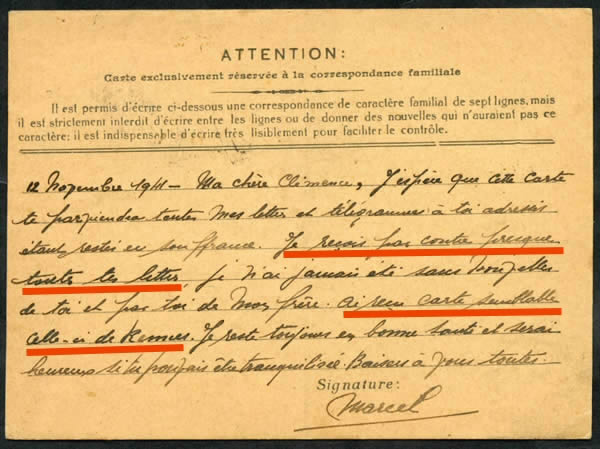 ATTENTION:
Carte exclusivement réservée à la correspondance familiale
Il est permis d'écrire ci-dessous une correspondance de caractère familial de sept lignes, mais
il est strictement interdit d'écrire entre les lignes ou de donner des nouvelles qui n'auraient pas ce
caractère; il est indispensable d'écrire très lisiblement pour faciliter le contrôle.
12 Novembre 1941 - Ma chère Clémence, J'espère que cette carte
te parviendra toutes mes lettres et télégrammes à toi adressés
étant restés en souffrance. Je reçois par contre presque
toutes tes lettres, je n'ai jamais été sans nouvelles
de toi et par toi de mon frère. Ai reçu carte semblable
celle-ci de Rennes. Je reste toujours en bonne santé et serai
heureux si tu pouvais être tranquilisée. Baisers à vous toutes.
Signature:
Marcel